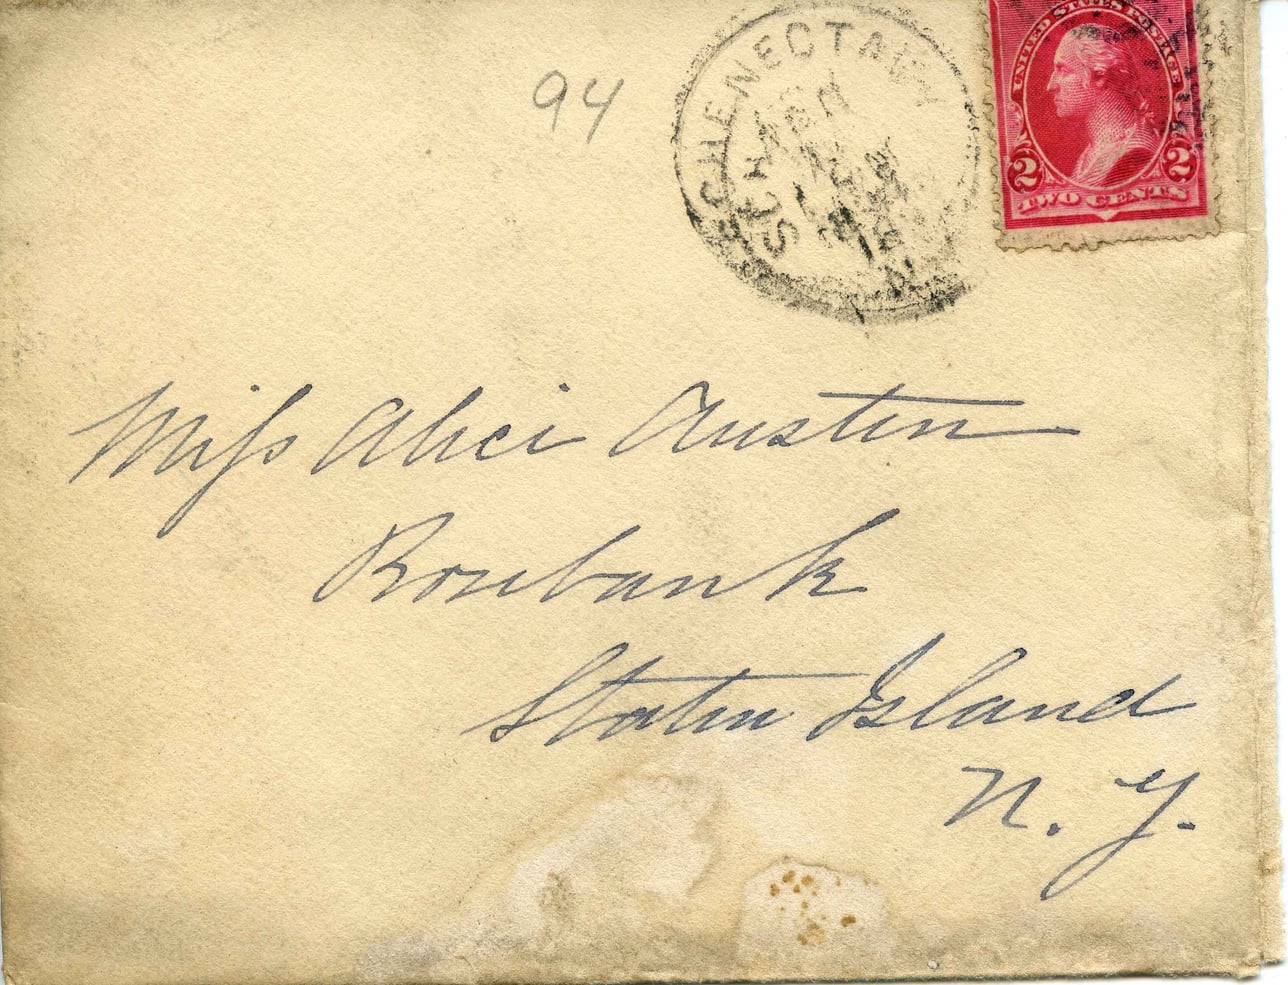 94
SCHENECTADY
UNITED STATES POSTAGE
2 2
TWO CENTS
Miss Alice Austen
Rosebank
Staten Island
N. Y.